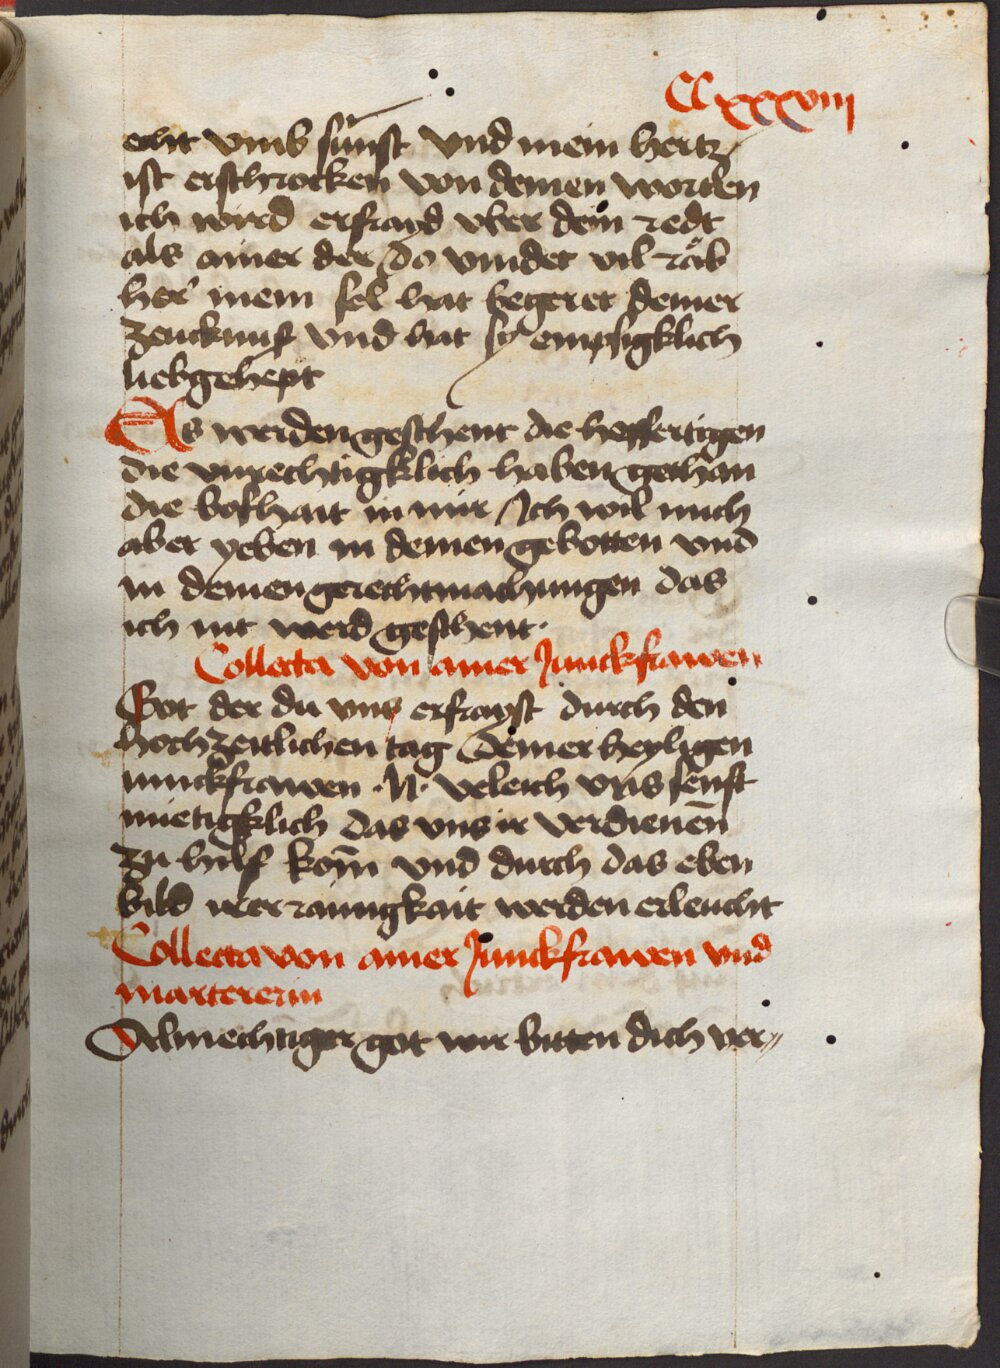 CCxxxviij
echt vmb sunst vnd mein hertz
ist erschrocken von deinen worten
ich wird erfrayd vber dein redt
als ainer der do vindet vil räb
her mein sel hat begeret deiner
zeucknus vnd hat sy empsigklich
liebgehept
Es werden geschent die hoffertigen
die vnrechtigklich haben gethan
die boshait in mir Ich wil mich
aber yeben in deinen gebotten vnd
in deinen gerechtmachungen das
ich nit werd geschent
Collecta von ainer Junckfrawen
Got der du vns erfrayst durch den
hochzeitlichen tag deiner heyligen
iunckfrawen .N. verleich vns senft
mietigklich das vns ir verdienen̄
zu hilf kom̄ vnd durch das eben
bild irer rainigkait werden erleucht
Collecta von ainer Junckfrawen vnd
martererin
Almechtiger got wir bitten dich ver⸗